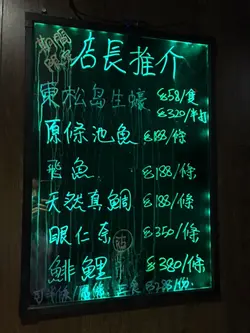 店長推介
東松島生蠔 $58/隻
$320/半打
原條池魚 $188/條
飛魚 $188/條
天然真鯛 $188/條
眼仁奈 $350/條
鯡鯉 $380/條